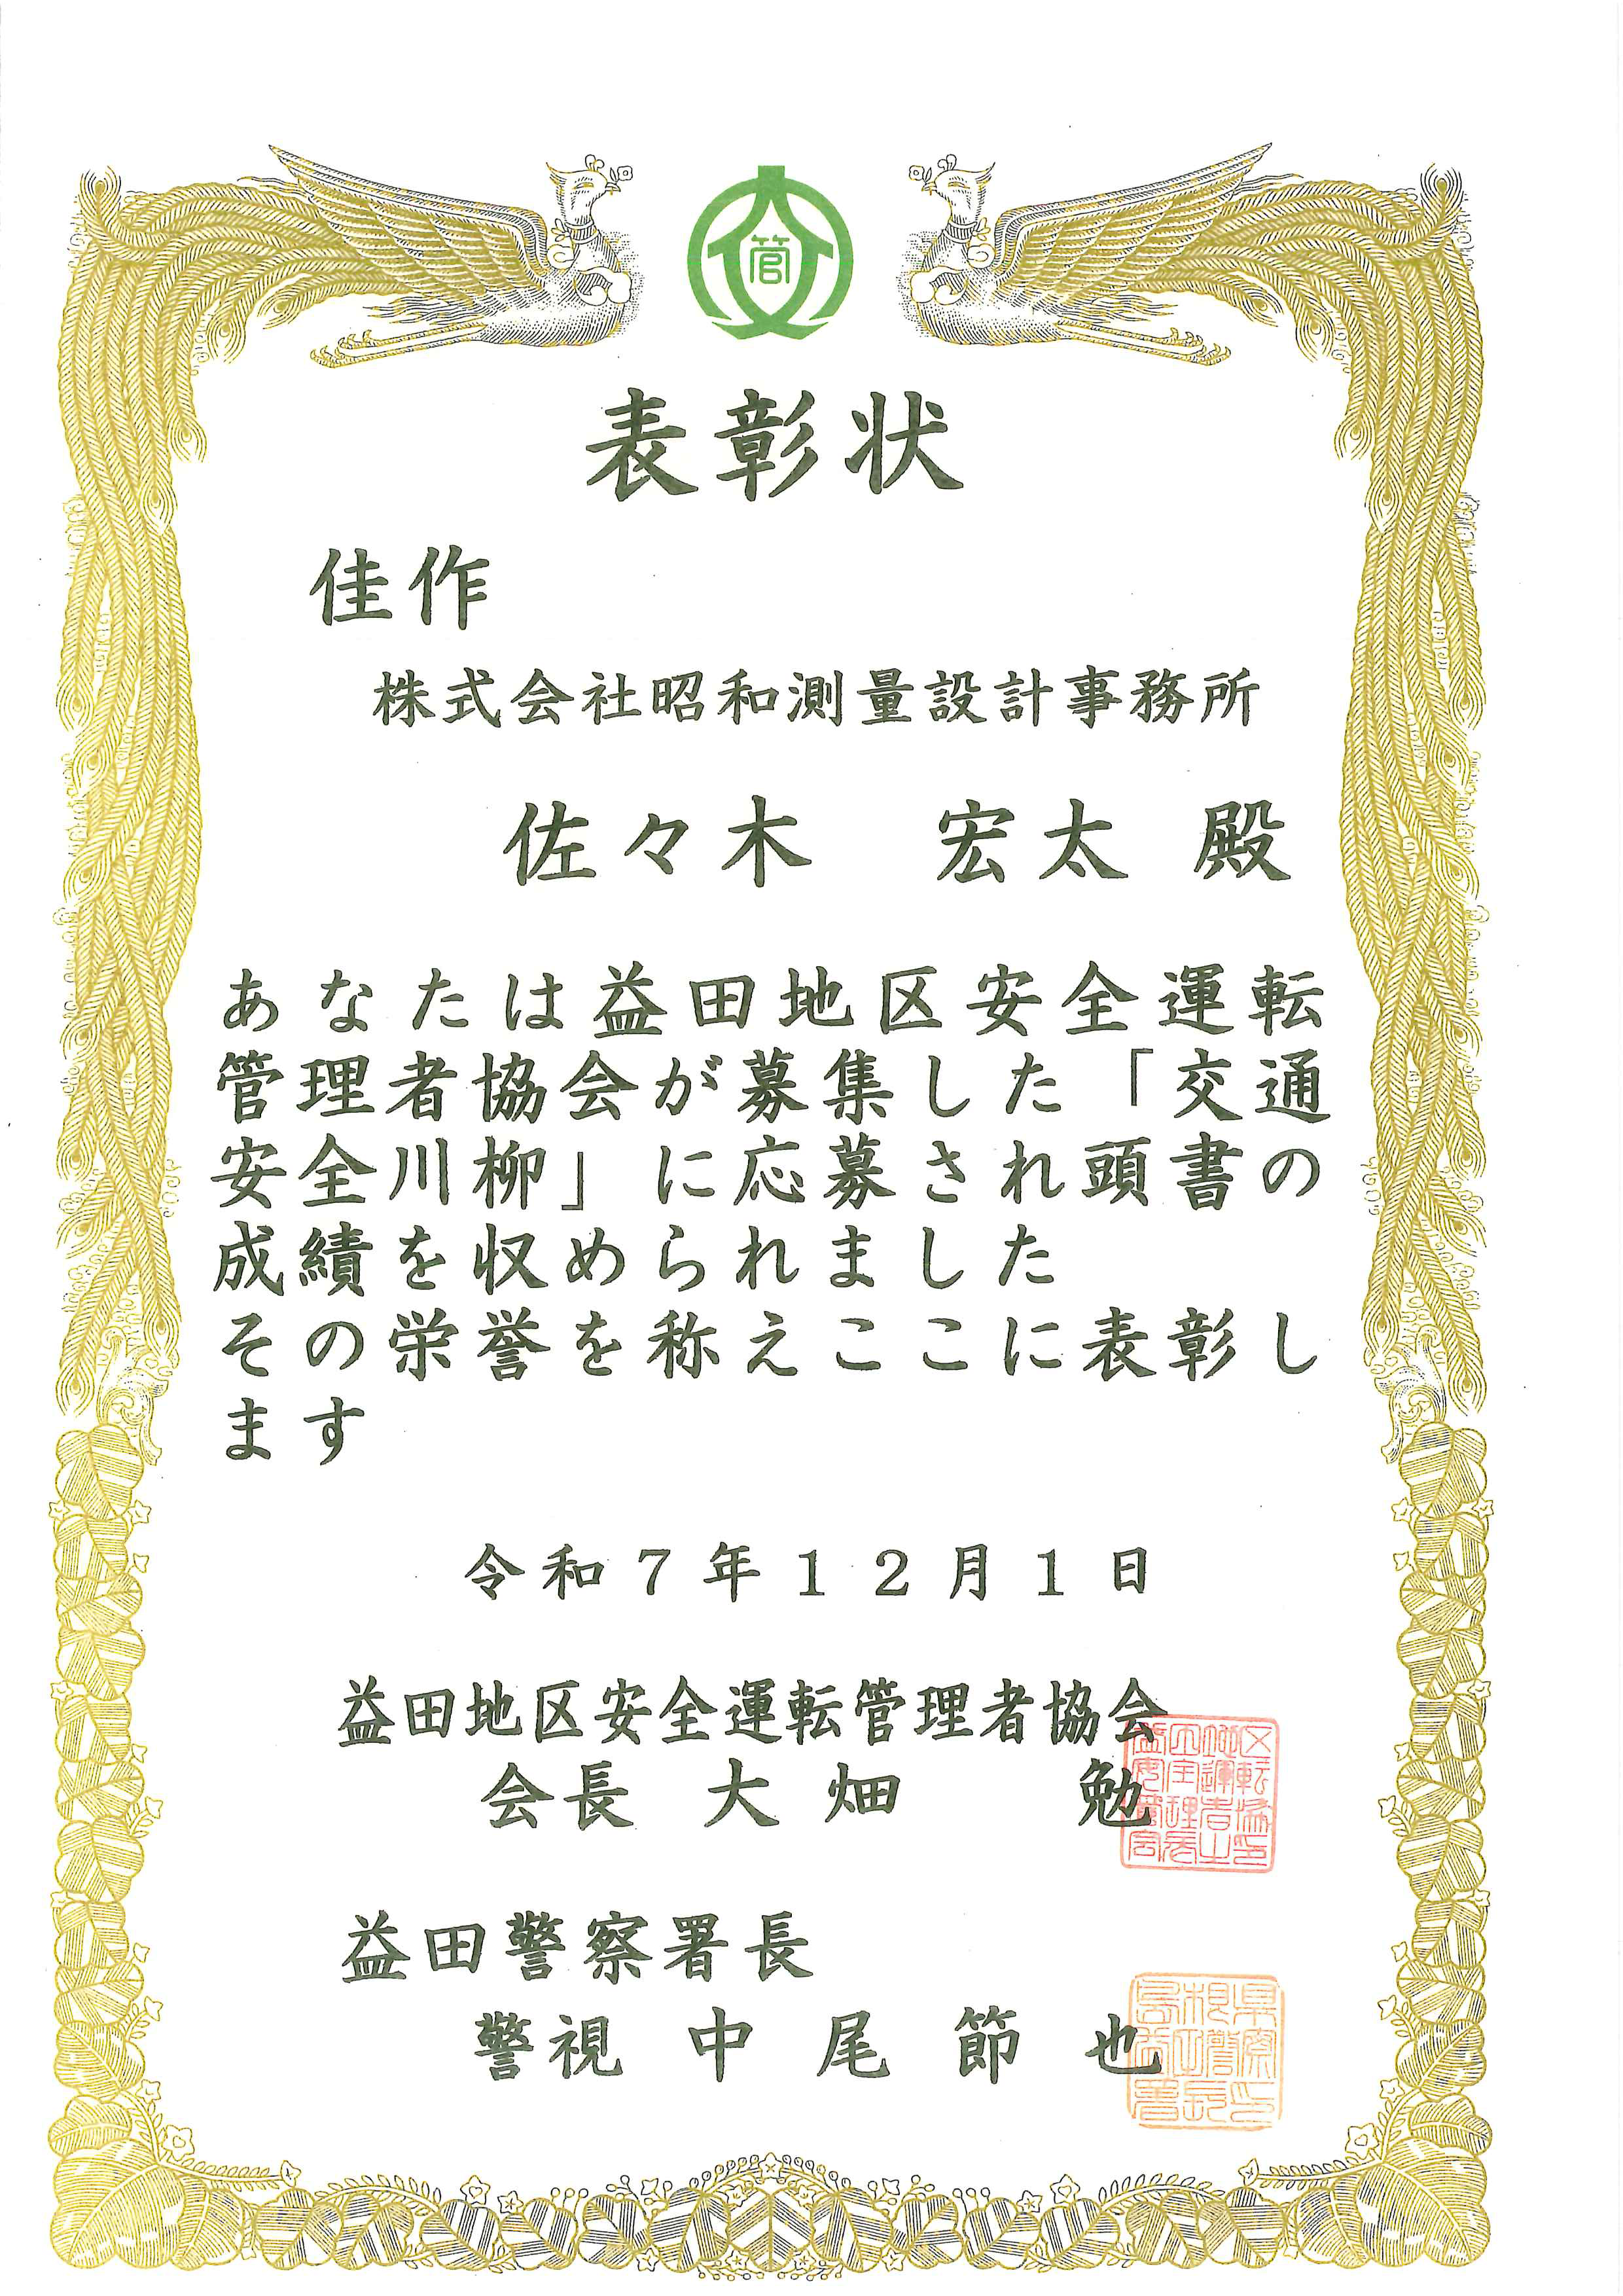 管
表彰状
佳作
株式会社昭和測量設計事務所
佐々木　宏太 殿
あなたは益田地区安全運転
管理者協会が募集した「交通
安全川柳」に応募され頭書の
成績を収められました
その栄誉を称えここに表彰し
ます
令和７年１２月１日
益田地区安全運転管理者協会
会長 大畑　勉
益田警察署長
警視 中尾節也